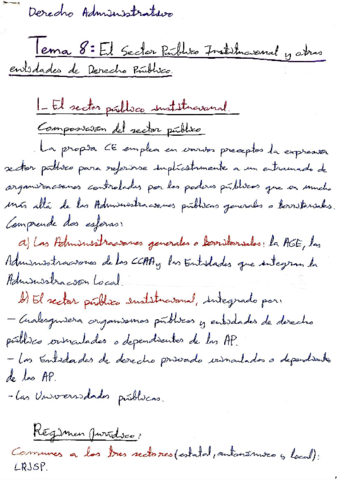 Derecho Administrativo
Tema 8: El Sector Público Institucional y otras
entidades de Derecho Público.
1_ El sector público institucional
Composición del sector público
La propia CE emplea en varios preceptos la expresión
sector público para referirse implícitamente a un entramado de
organizaciones controladas por los poderes públicos que va mucho
más allá de las Administraciones públicas generales o territoriales.
Comprende dos esferas:
a) Las Administraciones generales o territoriales: la AGE, las
Administraciones de las CCAA y las Entidades que integran la
Administración Local.
b) El sector público institucional, integrado por:
- Cualesquiera organismos públicos y entidades de derecho
público vinculados o dependientes de las AP.
- Las Entidades de derecho privado vinculadas o dependientes
de las AP.
- Las Universidades públicas.
Régimen Jurídico:
Comunes a los tres sectores (estatal, autonómico y local):
LRJSP.